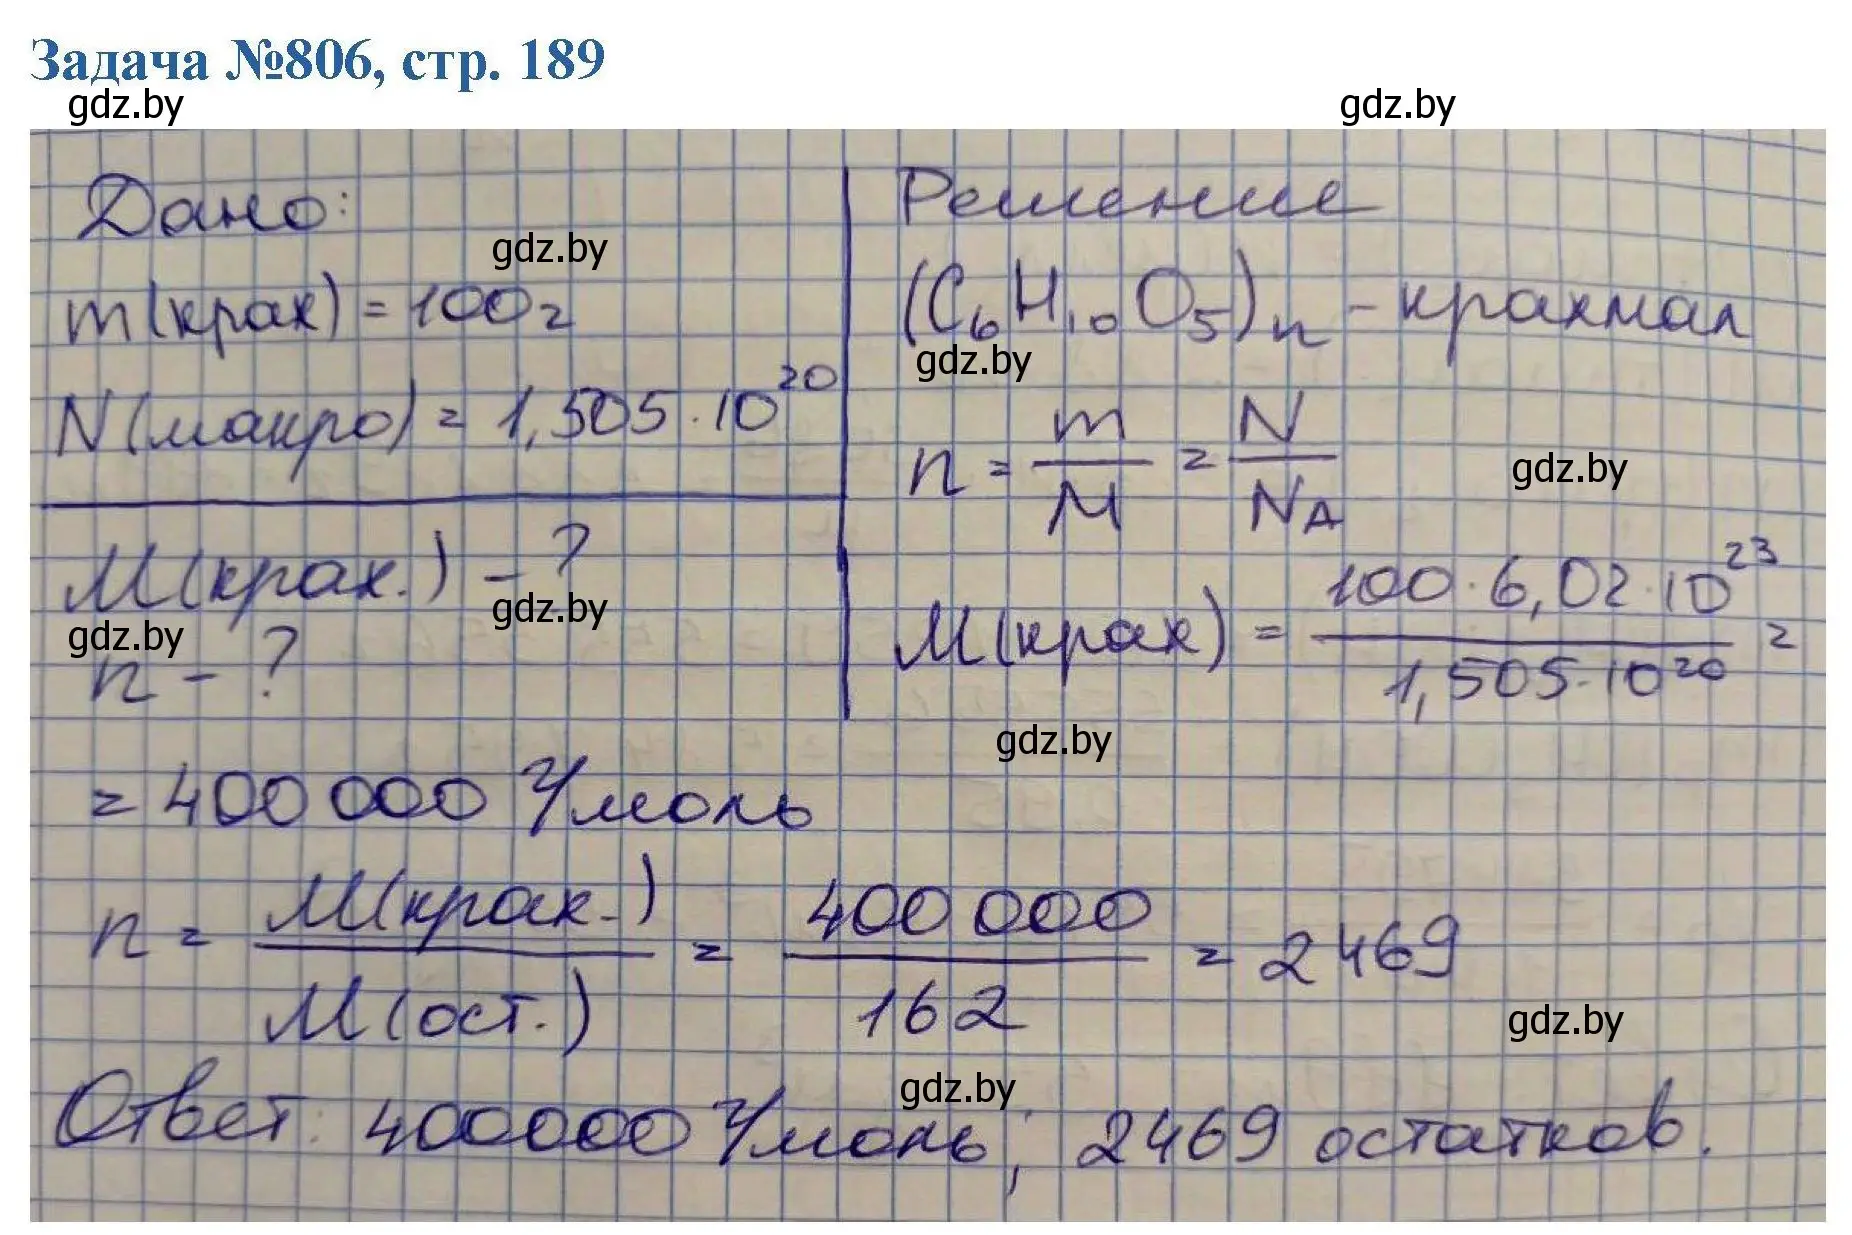 Задача №806, стр. 189
gdz.by gdz.by
Дано:
gdz.by
m(крах) = 100г
N(макро) = 1,505·10²⁰
M(крах.) - ?
gdz.by
gdz.by
n - ?
Решение
(C₆H₁₀O₅)n - крахмал
gdz.by
n = m/M = N/N_A
gdz.by
M(крах) = 100·6,02·10²³ / 1,505·10²⁰ =
gdz.by
= 400 000 г/моль
n = M(крах.)/M(ост.) = 400 000/162 = 2469
gdz.by
gdz.by
Ответ: 400000 г/моль; 2469 остатков.